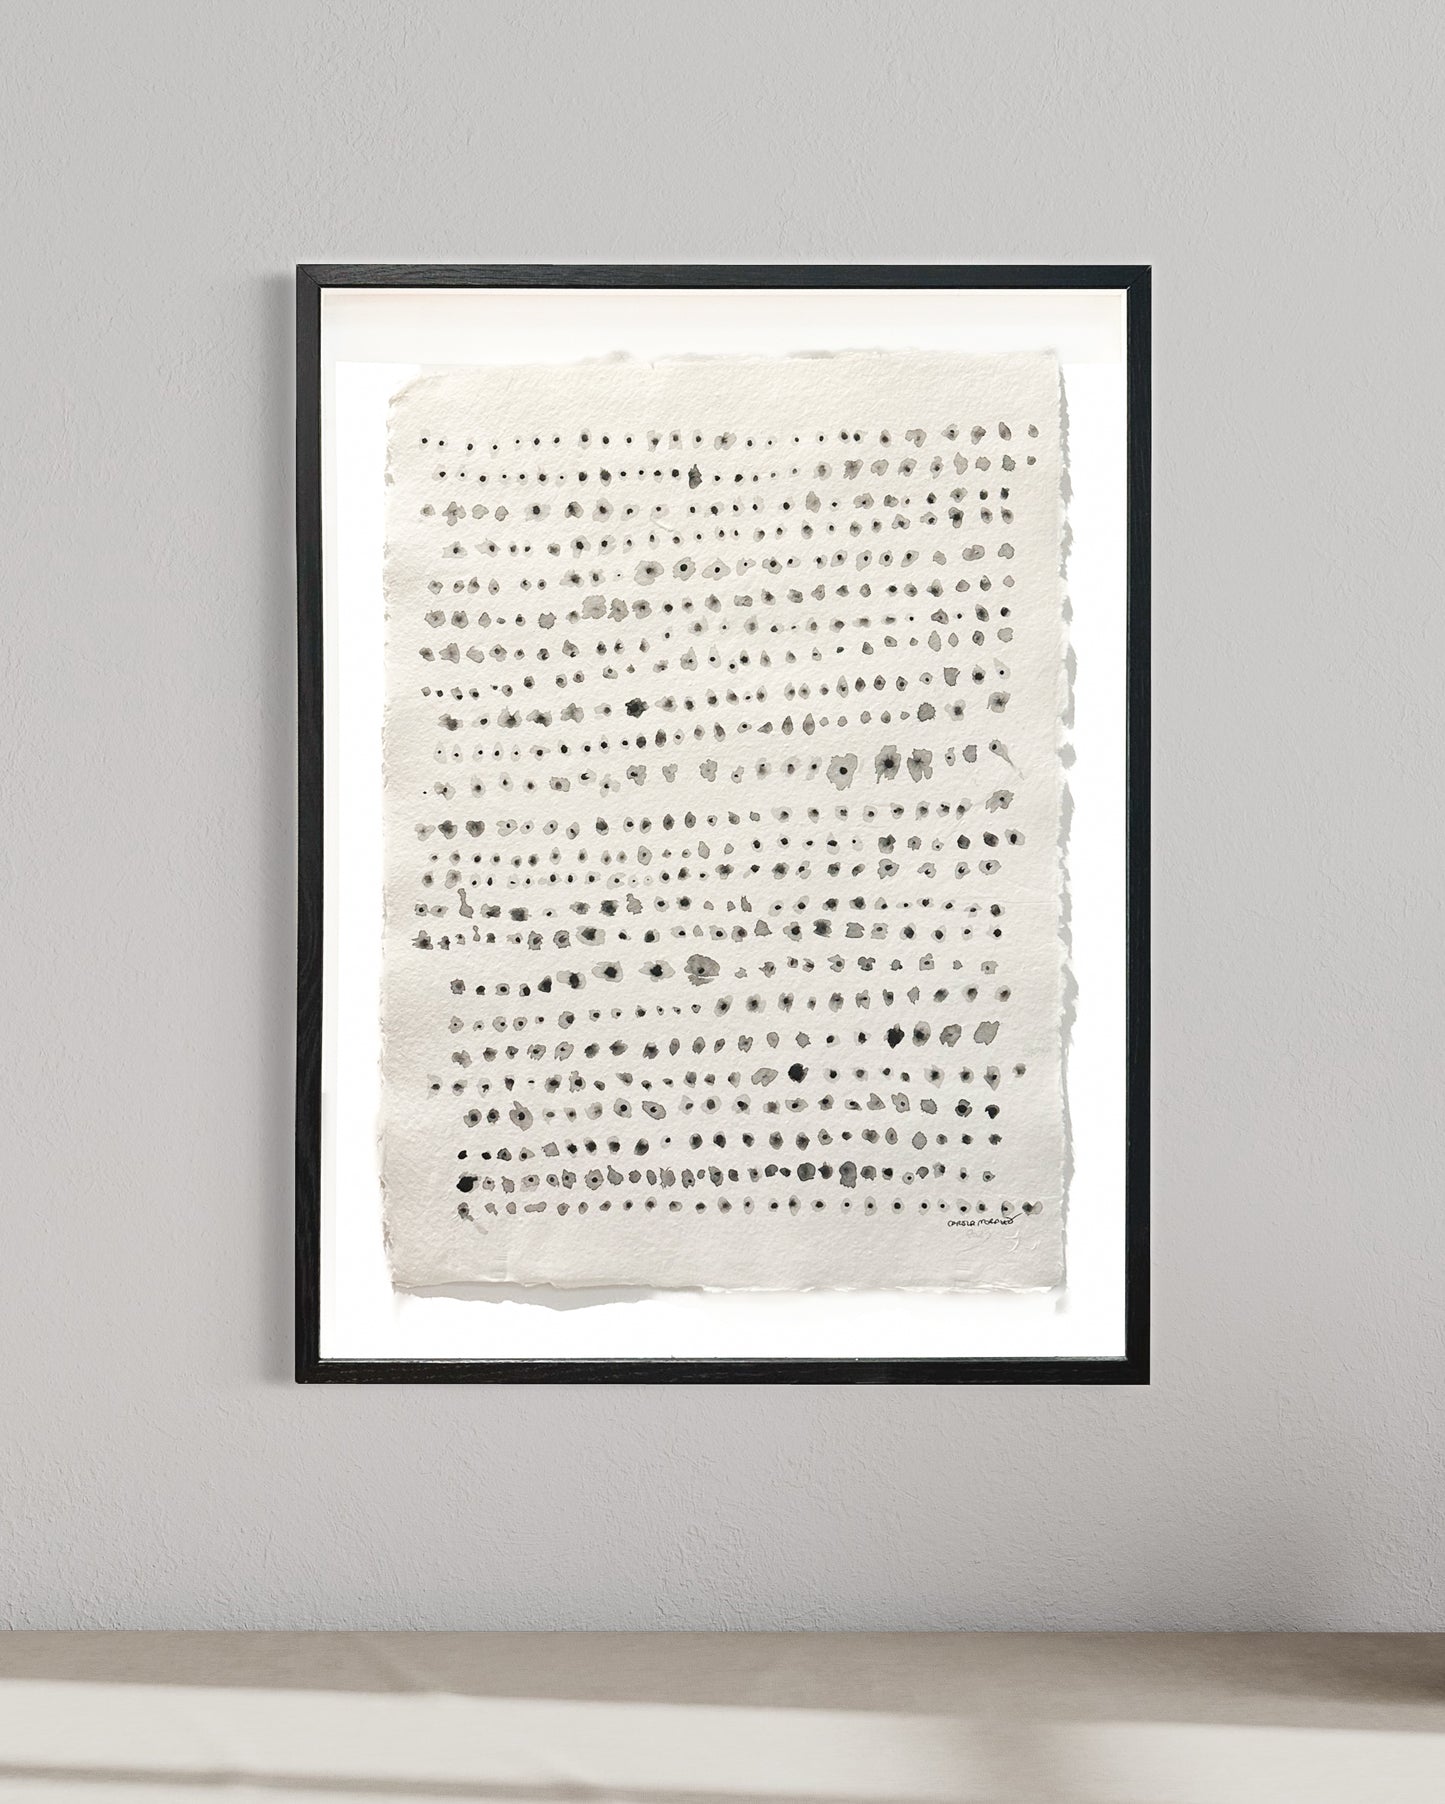 CAROLA MORALES